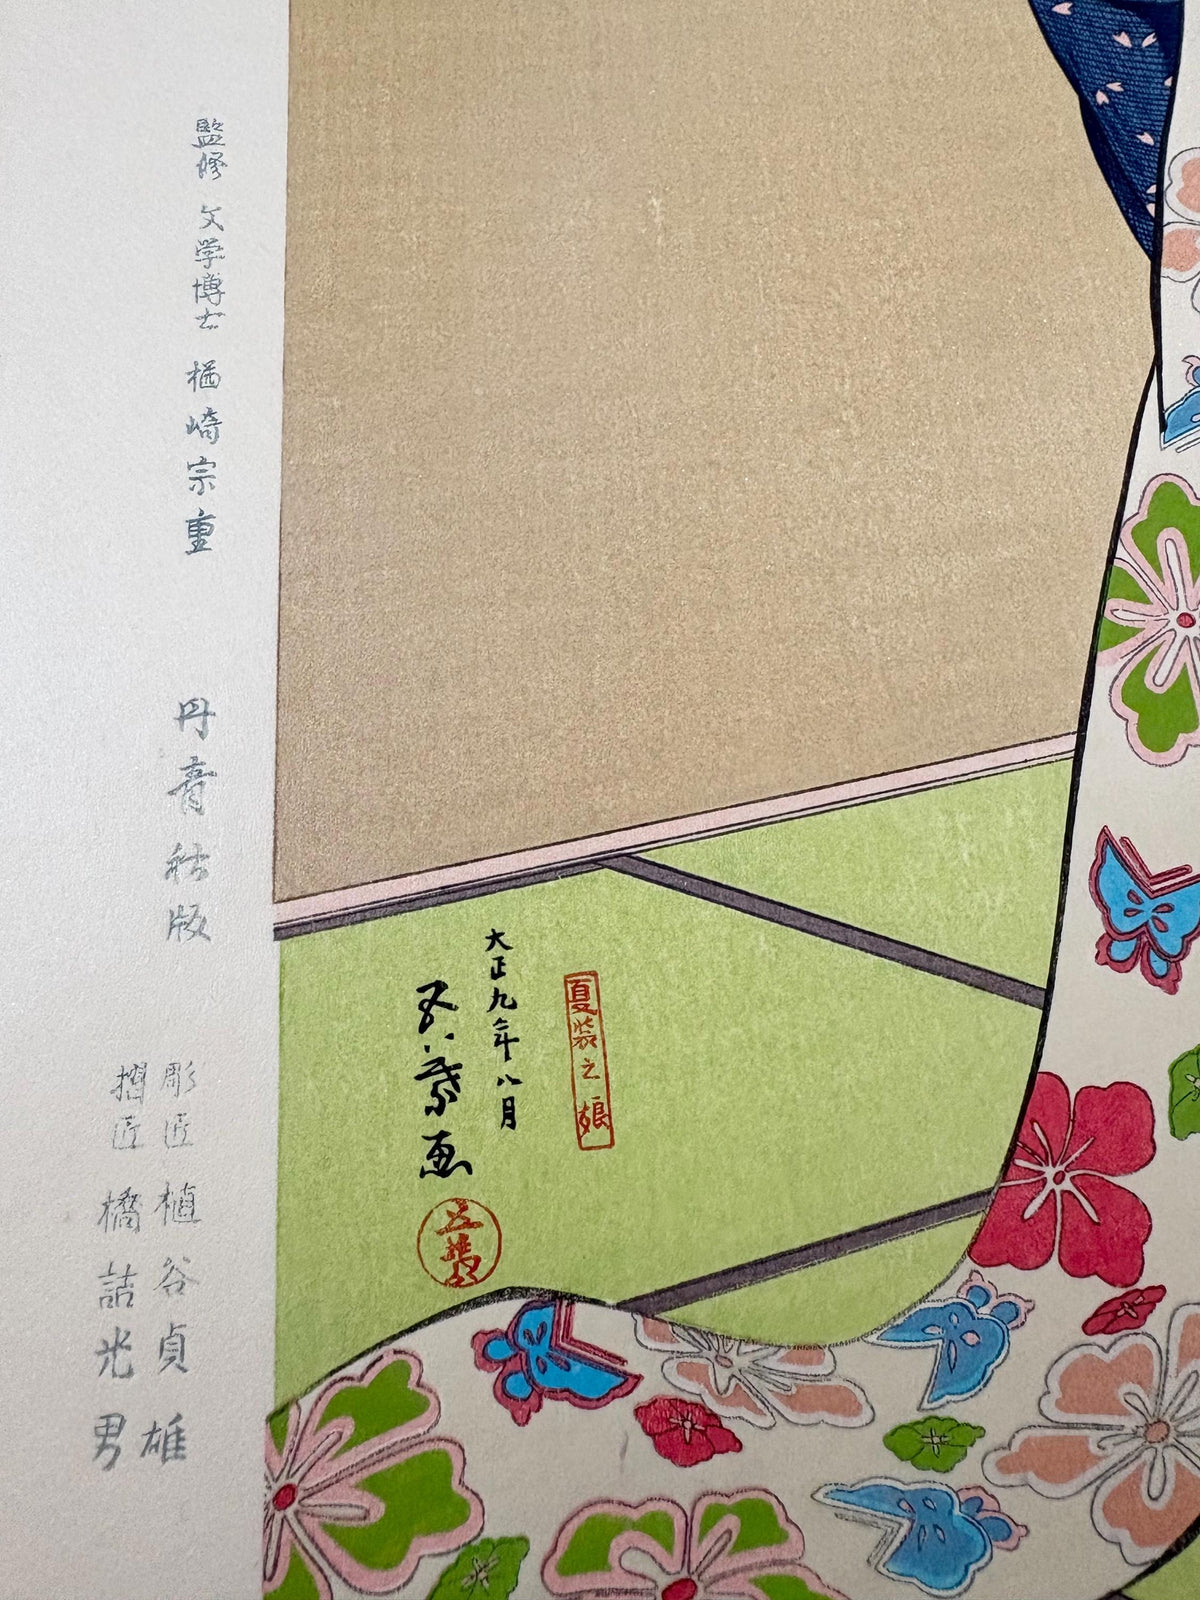 夏装之娘
大正九年八月
五葉画
五葉
監修 文学博士 楢崎宗重
丹青社版
彫匠 植谷貞雄
摺匠 橋詰光男